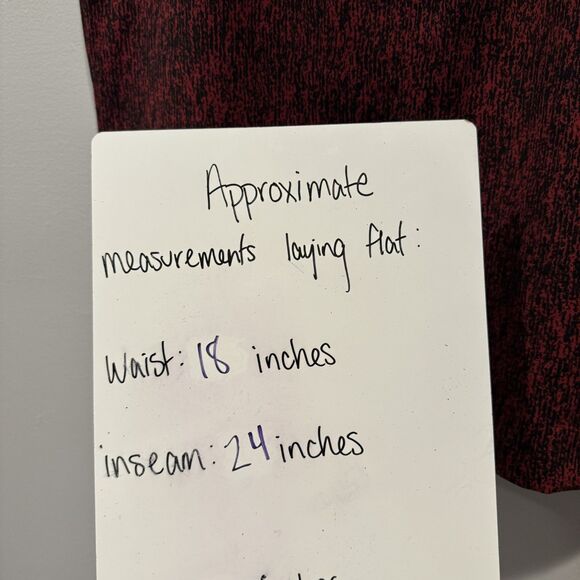 Approximate
measurements laying flat:
Waist: 18 inches
inseam: 24 inches